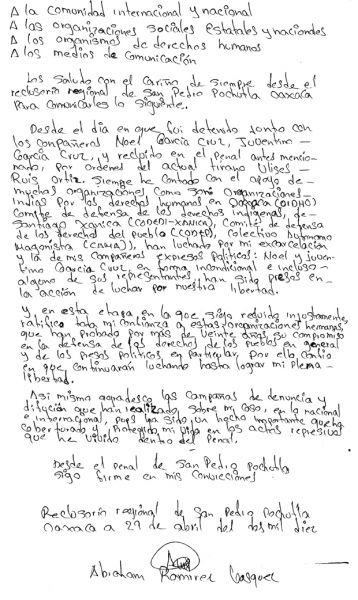 A la comunidad internacional y nacional
A las organizaciones sociales estatales y naciondes
A los organismos de derechos humanos
A los medios de comunicación
Los saludo con el Cariño de siempre desde el
reclusorio regional, de San Pedro Pochutla Oaxaca
Para comunicarles lo siguiente.
Desde el dia en que fui detenido junto con
los compañeros Noel García Cruz, Juventino
García Cruz, y recluido en el penal antes mencio-
nado, por ordenes del actual tirano Ulises
Ruis Ortiz. Siempre he contado con el apoyo de
muchas organizaciones como son: Organizaciones
Indias Por los derechos humanos en Oaxaca (OIDHO)
Comite de defensa de los derechos indigenas, de
Santiago Xanica (CODEDI-XANICA), Comité de defensa
de los derechos del pueblo (CODEP), Colectivo Autonomo
Magonista (CAMA)), han luchado por mi excarcelación
y la de mis compañeros expresos politicos: Noel y Juven-
tino García Cruz en forma incondicional e incluso
alguno de sus representantes, han sido presos en
la acción de luchar por nuestra libertad.
Y en esta etapa, en la que sigo recluido injustamente,
ratifico toda mi confianza a estas organizaciones hermanas,
que han probado por más de veinte años, su compromiso
en la defensa de los derechos de los pueblos en general
y de los presos politicos en particular, por ello confio
en que continuarán luchando hasta lograr mi plena
libertad.
Asi mismo agradesco las campañas de denuncia y
difución que han realizado, sobre mi caso, en lo nacional
e internacional, pues ha sido un hecho importante que ha
coberturado y protegido mi vida en los actos represivos
que he vivido dentro del Penal.
Desde el penal de San Pedro Pochutla
sigo firme en mis convicciones
Reclusorio regional de San Pedro Pochutla
Oaxaca a 29 de abril del dos mil diez
Abraham Ramirez Vasquez